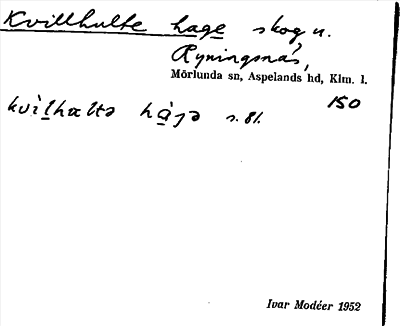 Kvillhulte hage skog u.
Ryningsnäs,
Mörlunda sn, Aspelands hd, Klm. l.
150
kvìlhæltə hàgə s. 81.
Ivar Modéer 1952